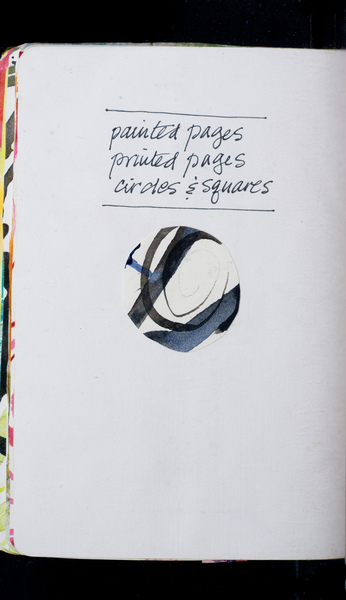 painted pages
printed pages
circles & squares